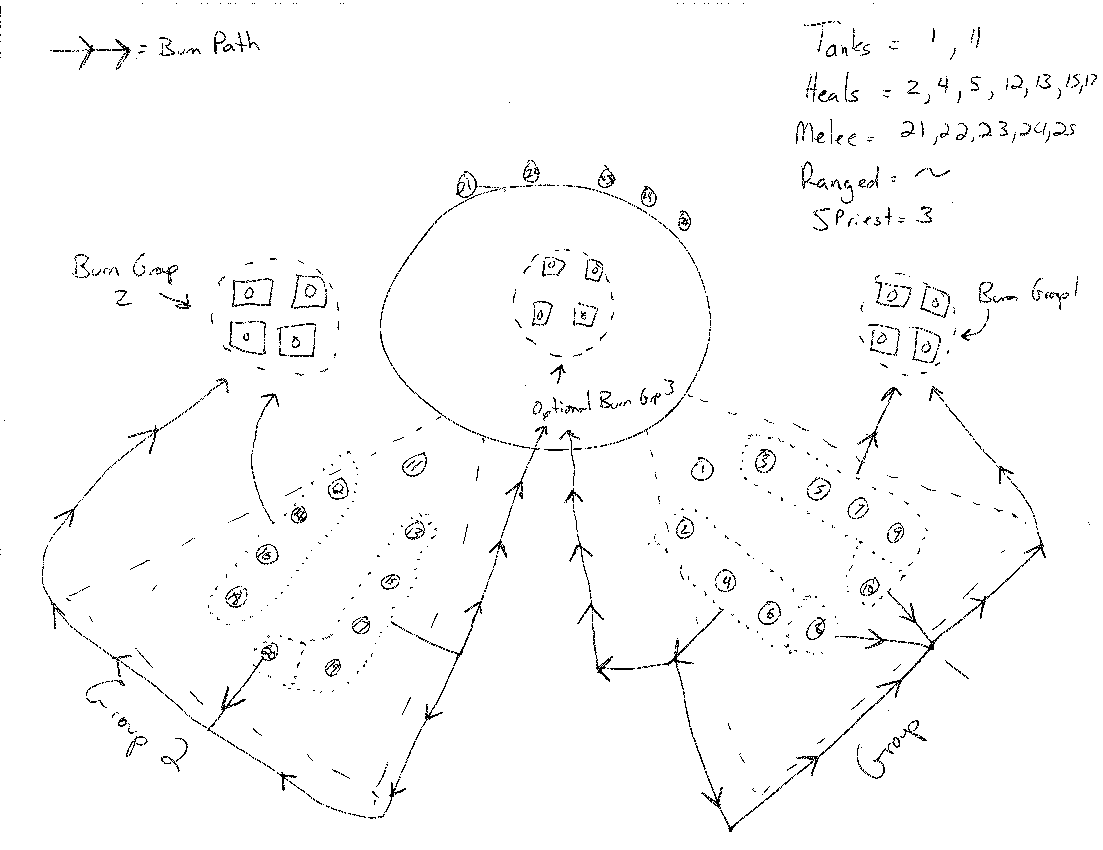 = Burn Path
Tanks = 1, 11
Heals = 2, 4, 5, 12, 13, 15, 17
Melee = 21, 22, 23, 24, 25
Ranged = ~
SPriest = 3
21
Burn Group
2
0 0
0 0
0 0
0 0
0 0
0 0
Burn Group 1
Optional Burn Grp 3
11
12
1
3
5
7
9
2
4
6
8
10
15
19
Group 2
Group